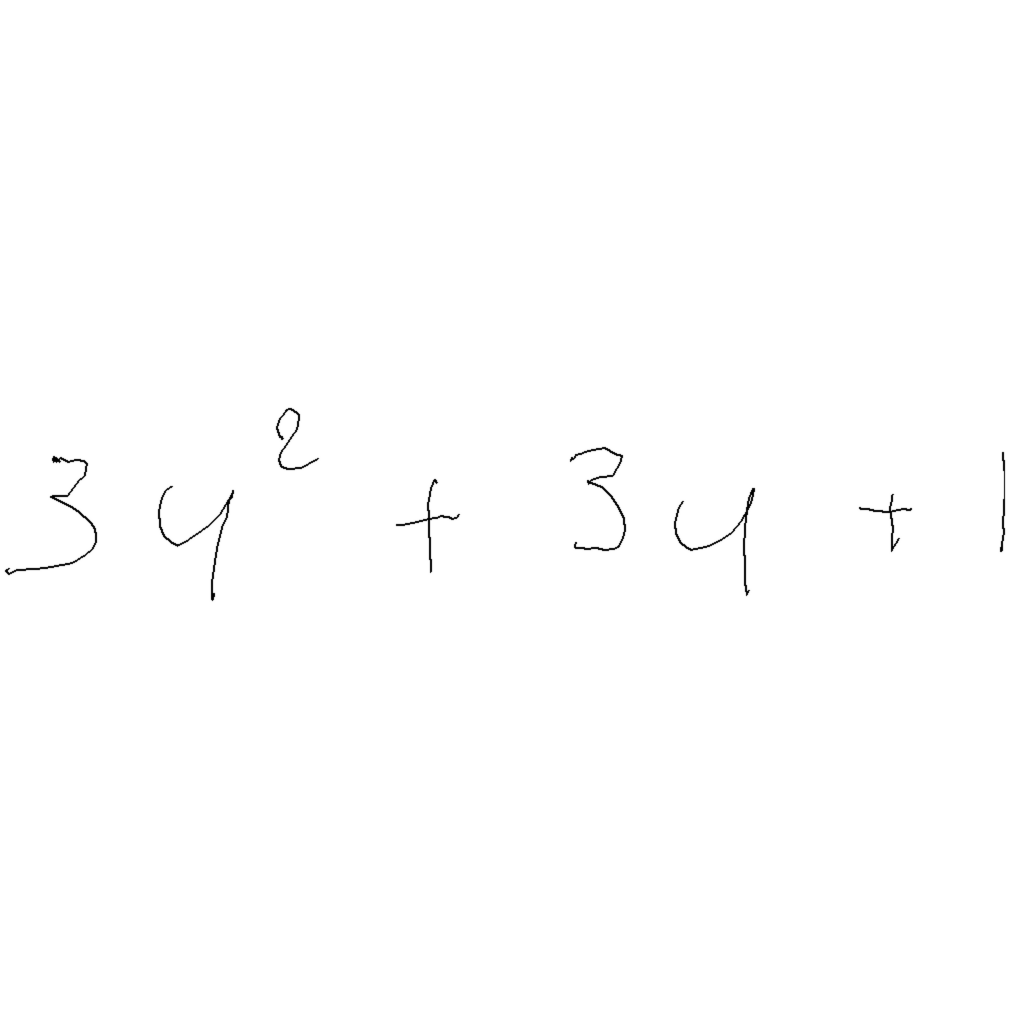 3y² + 3y + 1